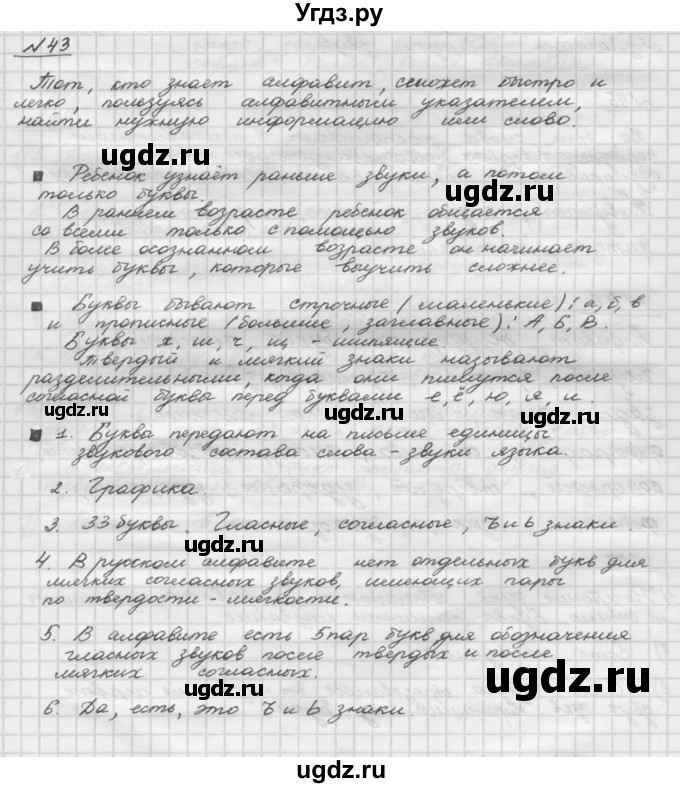 Угдз.ру
№43
Тот, кто знает алфавит, сможет быстро и
легко, пользуясь алфавитным указателем,
найти нужную информацию или слово.
ugdz.ru ugdz.ru
Ребенок узнаёт раньше звуки, а потом
только буквы.
В раннем возрасте ребенок общается
со всеми только с помощью звуков.
ugdz.ru
В более осознанном возрасте он начинает
учить буквы, которые выучить сложнее.
Буквы бывают строчные (маленькие): а, б, в
и прописные (большие, заглавные): А, Б, В.
ugdz.ru ugdz.ru
Буквы х, ш, ч, щ - шипящие.
Твердый и мягкий знаки называют
разделительными, когда они пишутся после
согласной буквы перед буквами е, ё, ю, я, и.
ugdz.ru
1. Буквы передают на письме единицы
звукового состава слова - звуки языка.
2. Графика.
ugdz.ru ugdz.ru
3. 33 буквы. Гласные, согласные, Ъ и Ь знаки.
4. В русском алфавите нет отдельных букв для
мягких согласных звуков, имеющих пары
по твердости - мягкости.
ugdz.ru
5. В алфавите есть 5 пар букв для обозначения
гласных звуков после твердых и после
мягких согласных.
ugdz.ru ugdz.ru
6. Да, есть, это Ъ и Ь знаки.
ugdz.ru